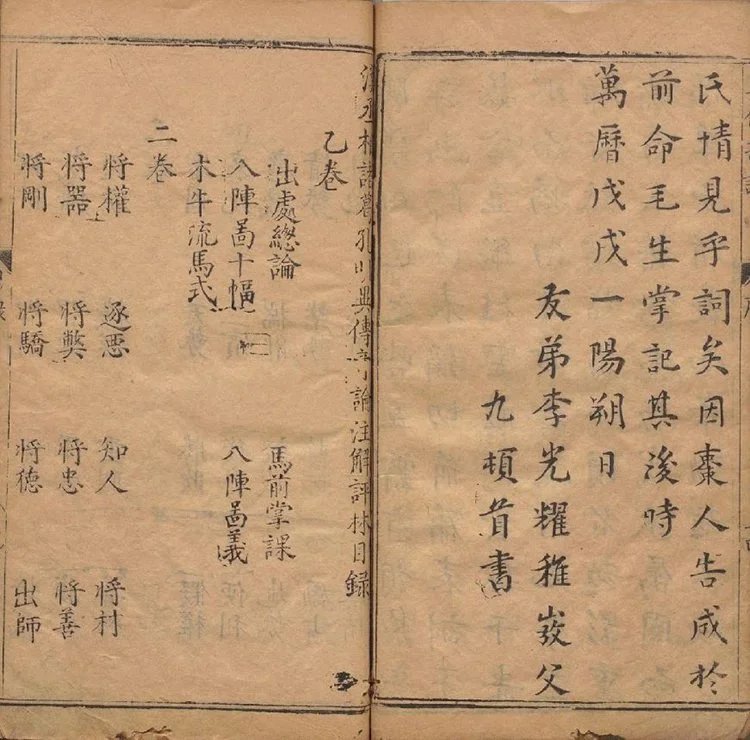 氏情見乎詞矣因棗人告成於
前命毛生掌記其後時
萬曆戊戌一陽朔日
友弟李光耀稚父
九頓首書
漢丞相諸葛孔明異傳奇論注解評林目錄
乙卷
出處總論 馬前掌課
八陣啚十幅 八陣啚義
木牛流馬式
二卷
将權 逐悪 知人 将材
将器 将弊 将忠 将善
将剛 将驕 将德 出師